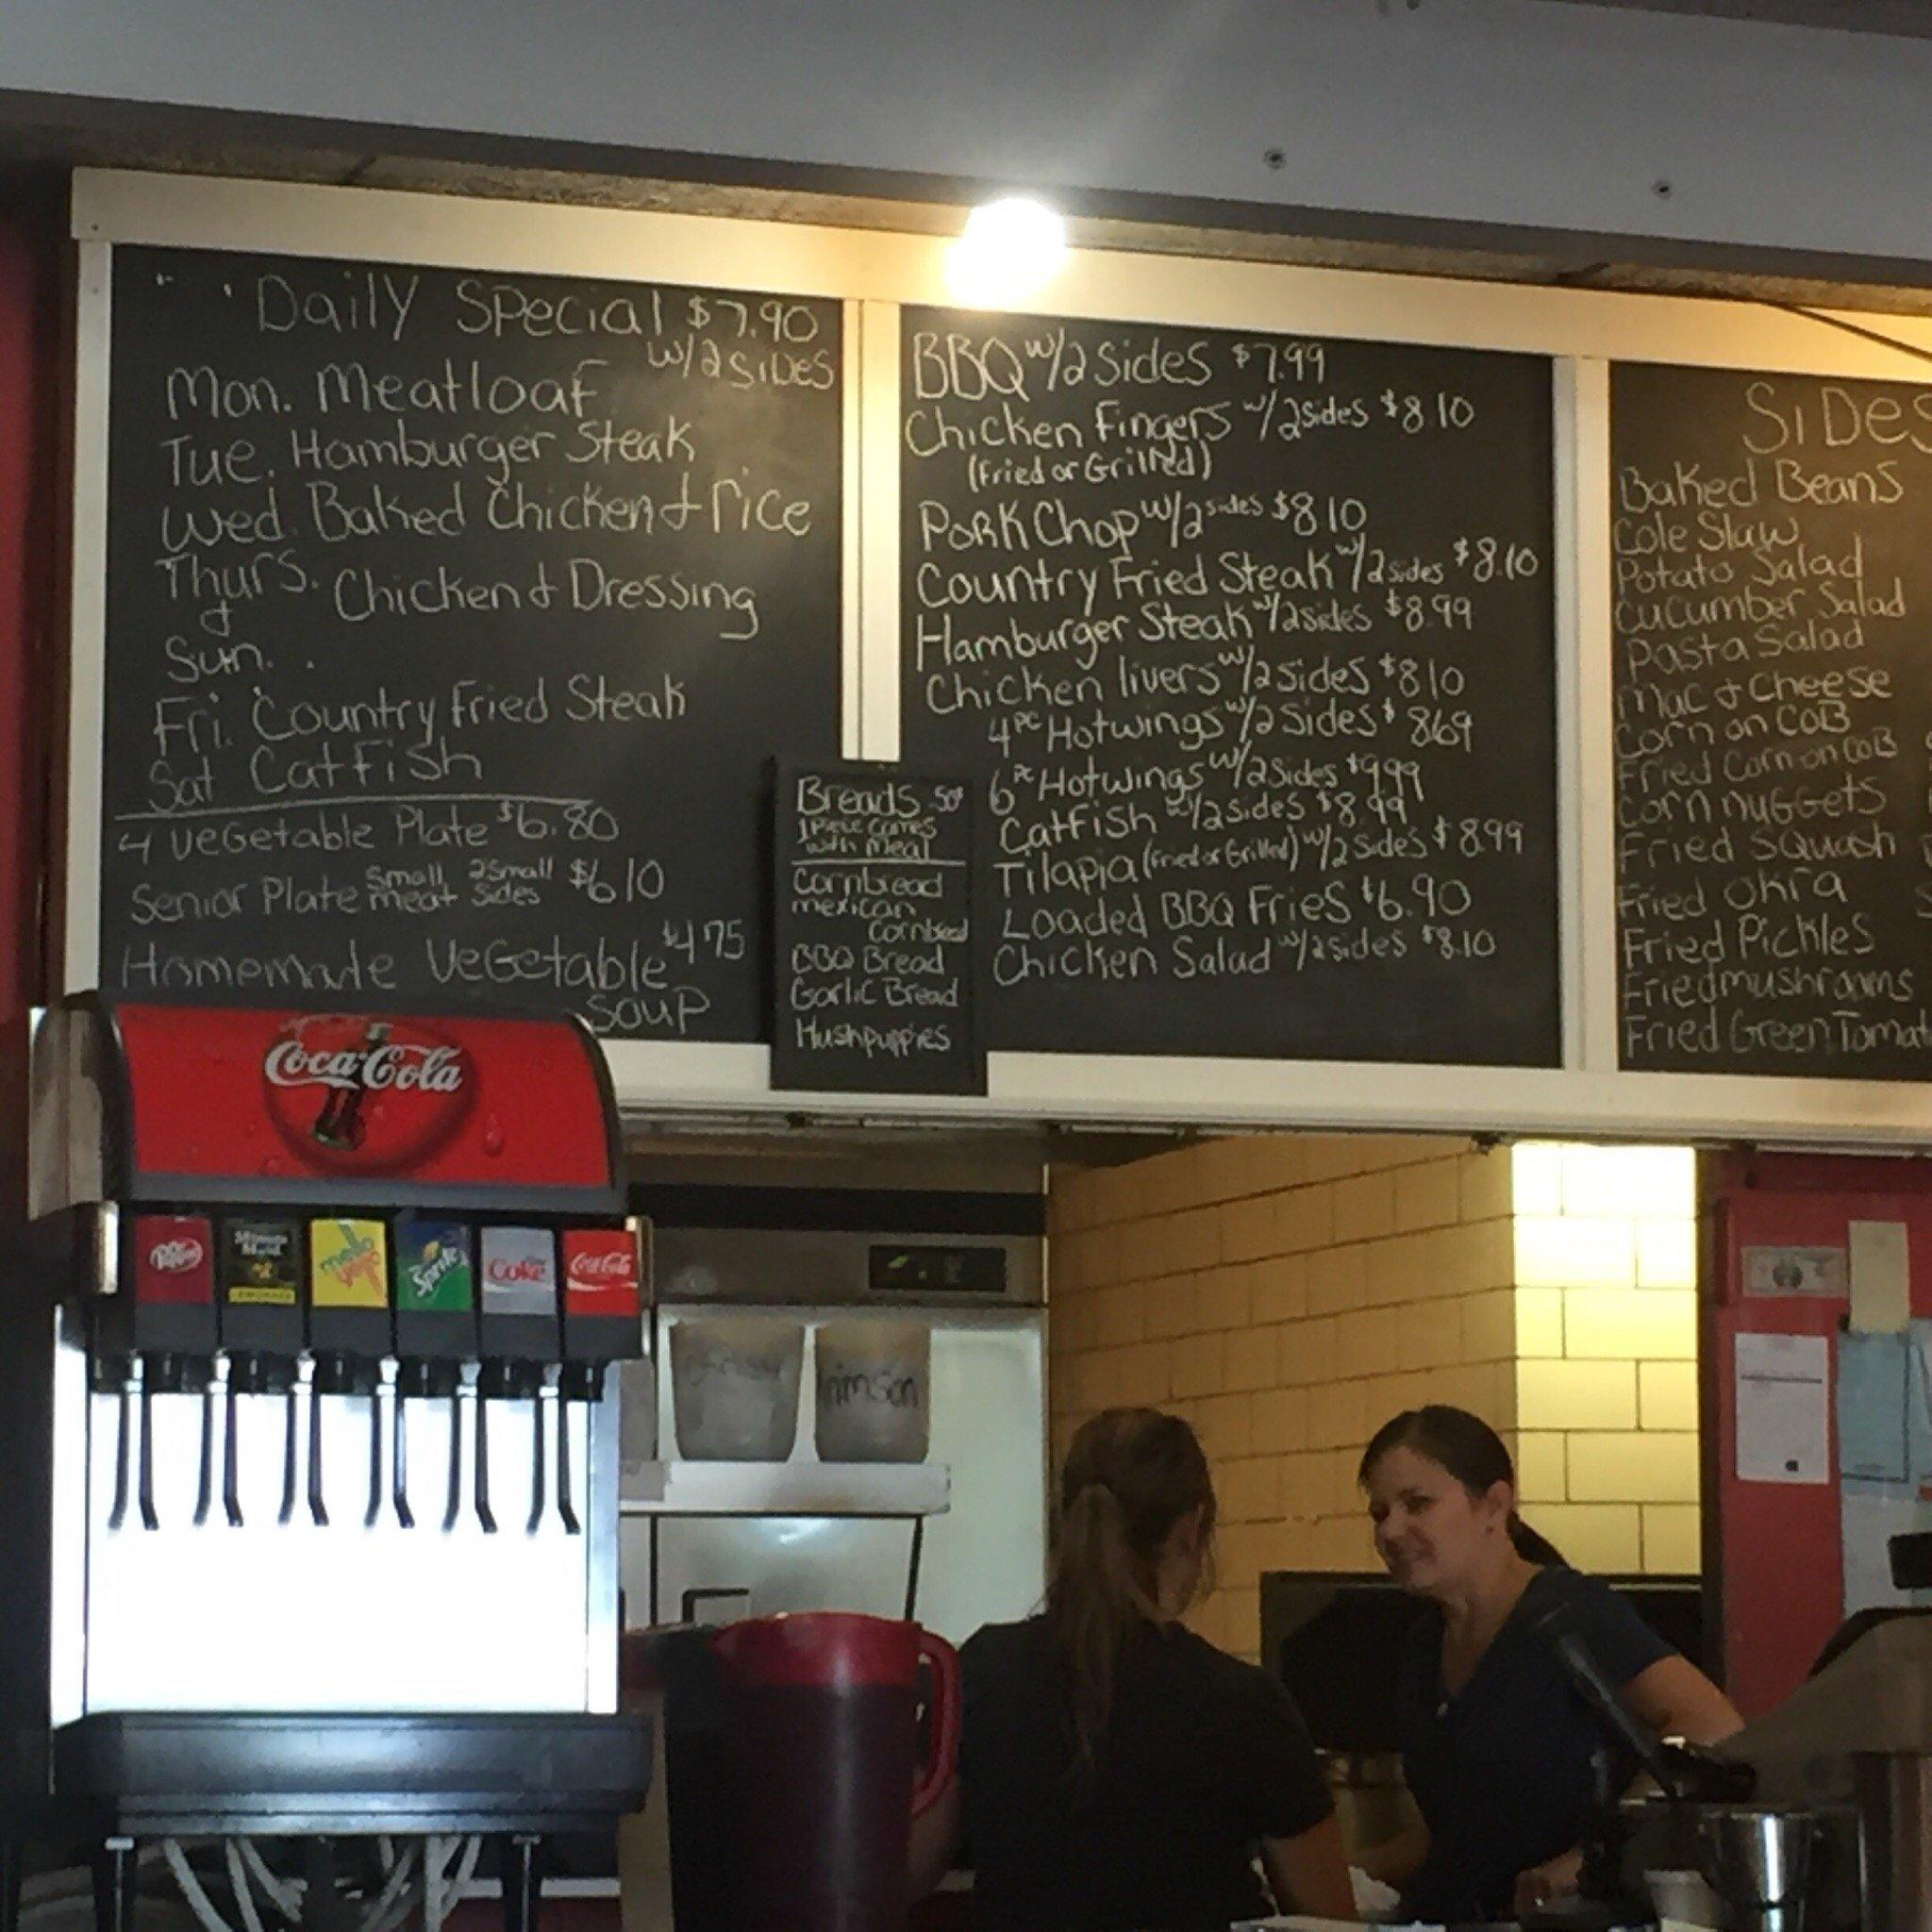 Daily Special $7.90
w/2 SIDES
Mon. Meatloaf
Tue. Hamburger Steak
Wed. Baked Chicken & rice
Thurs.
& Chicken & Dressing
Sun.
Fri. Country Fried Steak
Sat Catfish
4 Vegetable Plate $6.80
Senior Plate small meat 2small sides $6 10
Homemade Vegetable $4 75
Soup
Breads .50¢
1 Piece comes
with meal
Cornbread
mexican
Cornbread
BBQ Bread
Garlic Bread
Hushpuppies
BBQ w/2 Sides $7.99
Chicken Fingers w/2sides $8.10
(Fried or Grilled)
Pork Chop w/2 sides $8 10
Country Fried Steak w/2sides $8.10
Hamburger Steak w/2sides $8.99
Chicken livers w/2 Sides $8 10
4pc Hotwings w/2 Sides $8 69
6pc Hotwings w/2Sides $9 99
Catfish w/2sides $8.99
Tilapia (Fried or Grilled) w/2 Sides $8.99
Loaded BBQ Fries $6.90
Chicken Salad w/2sides $8.10
SIDES
Baked Beans
Cole Slaw
Potato Salad
Cucumber Salad
Pasta Salad
Mac & Cheese
Corn on CoB
Fried Corn on CoB
Corn nuggets
Fried Squash
Fried Okra
Fried Pickles
Fried mushrooms
Fried Green Tomat
Coca-Cola
Dr Pepper
Minute Maid
LEMONADE
mello yello
Sprite
Coke
Coca-Cola